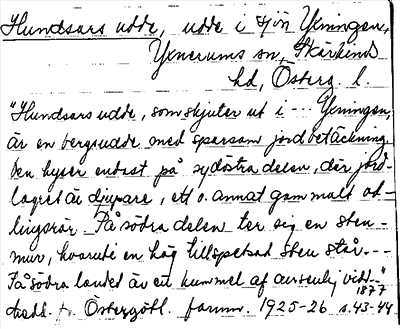 Hundsars udde, udde i sjön Yxningen,
Yxnerums sn, Skärkinds
hd, Österg. l.
"Hundsars udde, som skjuter ut i --- Yxningen,
är en bergsudde med sparsam jordbetäckning.
Den hyser endast på sydöstra delen, där jord-
lagret är djupare, ett o. annat gammalt od-
lingsrör. På södra delen ter sig en sten-
mur, hvaruti en hög tillspetsad sten står. ---
På södra landet är ett kummel af ansenlig vidd."
1877
Östergötl. fornm. 1925-26 s. 43-44